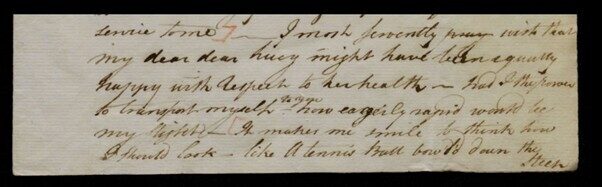 service to me 7 — I most fervently pray wish that
my dear dear Lucy might have been equally
happy with respect to her health — had I the power
to transport myself to you how eagerly rapid would be
my flight — It makes me smile to think how
I should look — like A tennis ball bowl'd down the
steep